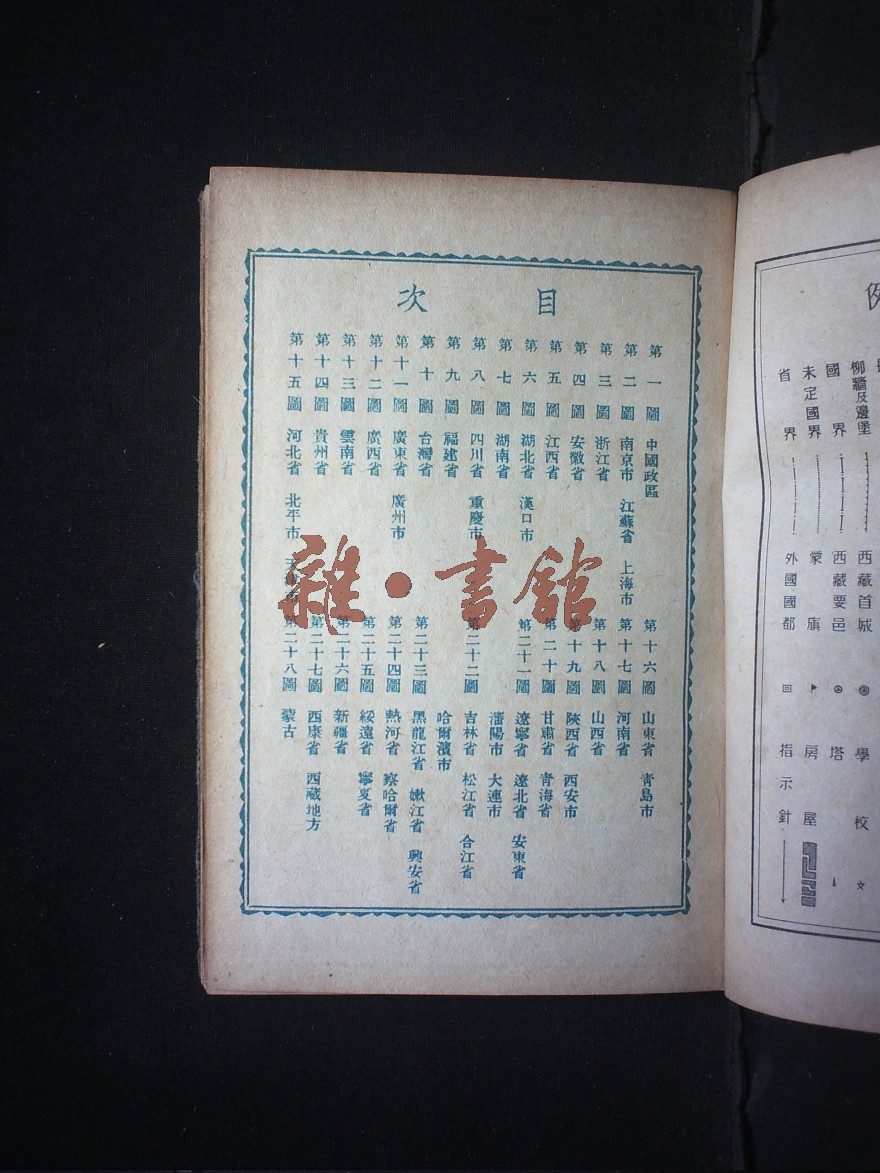 目次
第一圖 中國政區
第二圖 南京市 江蘇省 上海市
第三圖 浙江省
第四圖 安徽省
第五圖 江西省
第六圖 湖北省 漢口市
第七圖 湖南省
第八圖 四川省 重慶市
第九圖 福建省
第十圖 台灣省
第十一圖 廣東省 廣州市
第十二圖 廣西省
第十三圖 雲南省
第十四圖 貴州省
第十五圖 河北省 北平市
第十六圖 山東省 青島市
第十七圖 河南省
第十八圖 山西省
第十九圖 陝西省 西安市
第二十圖 甘肅省 青海省
第二十一圖 遼寧省 遼北省 安東省
瀋陽市 大連市
第二十二圖 吉林省 松江省 合江省
哈爾濱市
第二十三圖 黑龍江省 嫩江省 興安省
第二十四圖 熱河省 察哈爾省
第二十五圖 綏遠省 寧夏省
第二十六圖 新疆省
第二十七圖 西康省 西藏地方
第二十八圖 蒙古
雜·書館
例
柳牆及邊堡 西藏首城 學校 文
國界 西藏要邑 塔
未定國界 蒙旗 房屋
省界 外國國都 指示針